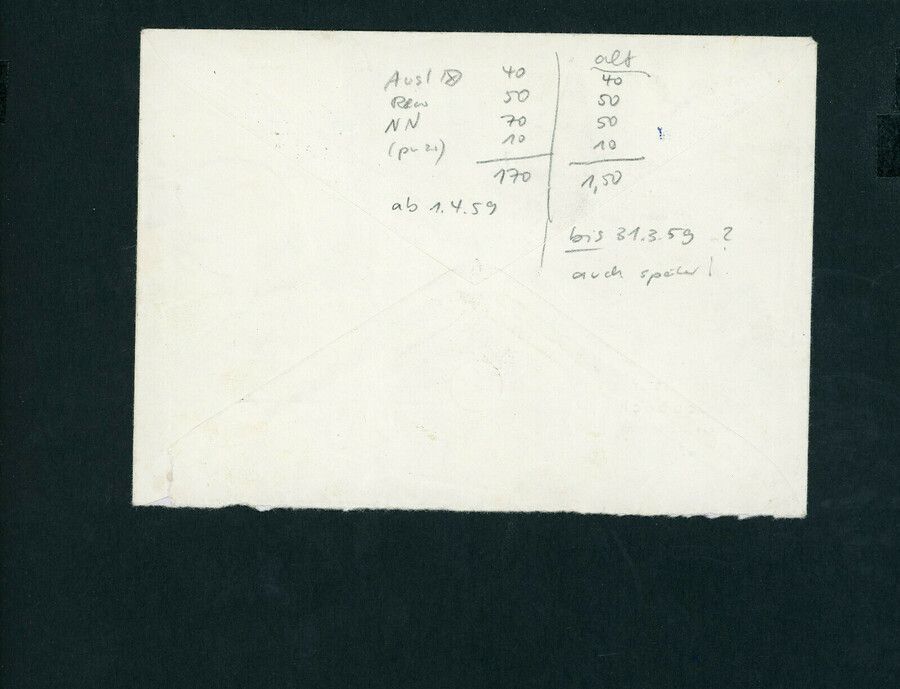 Ausl ✉ 40
50
NN 70
10
170
ab 1.4.59
alt
40
50
50
10
1,50
bis 31.3.59 ?
auch später!